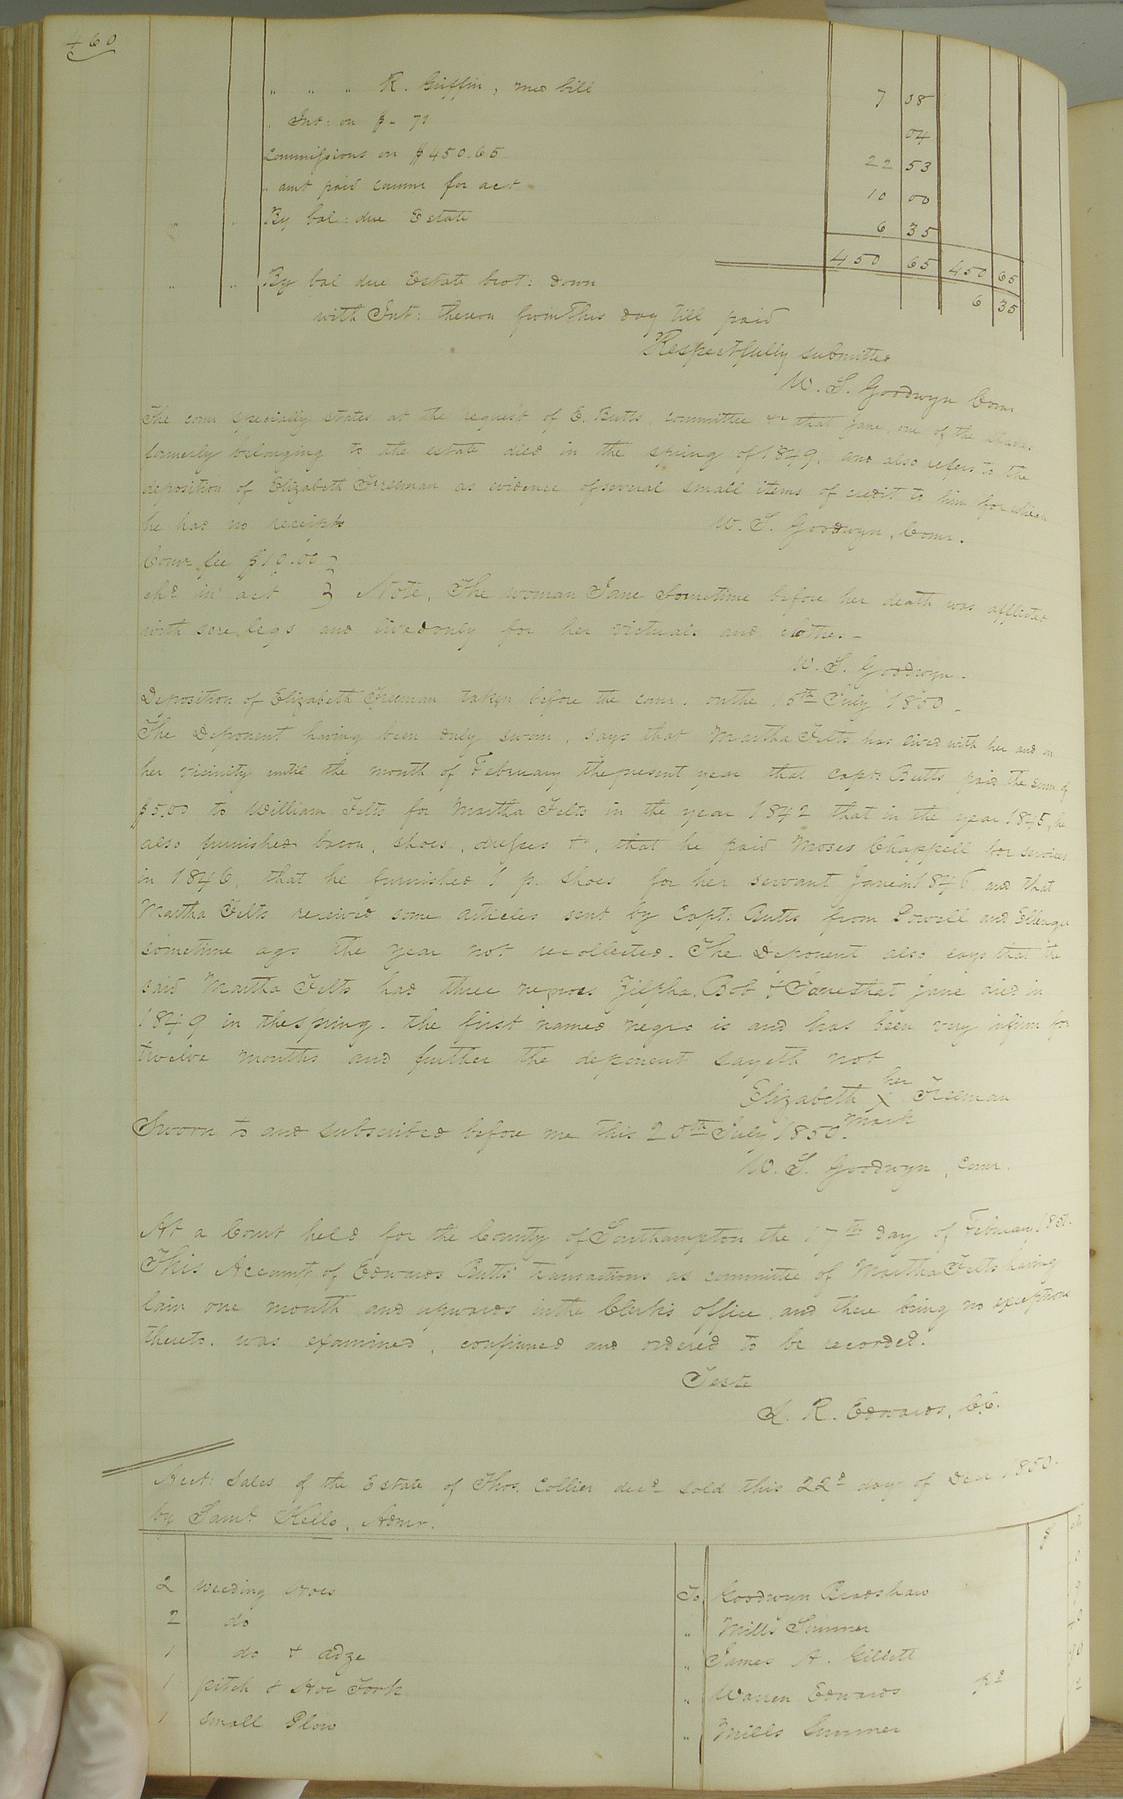 460
" " " R. Griffin, med bill 7 58
" Int: on $- 71 04
Commissions on $450.65 22 53
" amt paid comnr for act 10 00
" " By bal: due Estate 6 35
450 65 450 65
" " By bal due Estate brot: down 6 35
with Int: thereon from this day till paid
Respectfully submitted
W. S. Goodwyn Comr
The comr specially states at the request of E. Butts, committee &c that Jane one of the slaves
formerly belonging to the estate died in the spring of 1849, and also refers to the
deposition of Elizabeth Freeman as evidence of several small items of credit to him for which
he had no receipts W. S. Goodwyn, Comr.
Comr fee $10.00 }
chd in act } Note, The woman Jane sometime before her death was afflicted
with sore legs and lived only for her victuals and clothes.-
W. S. Goodwyn.
Deposition of Elizabeth Freeman taken before the comr. on the 15th July 1850 -
The Deponent having been duly sworn, says that Martha Felts has lived with her and in
her vicinity until the month of February the present year that Capt. Butts paid the sum of
$5.00 to William Felts for Martha Felts in the year 1842 that in the year 1845, he
also furnished bacon, shoes, dresses &c, that he paid Moses Chappell for services
in 1846, that he furnished 1 pr. shoes for her servant Jane in 1846 and that
Martha Felts received some articles sent by Capt: Butts from Powell and
sometime ago the year not recollected. The Deponent also says that the
said Martha Felts had three negroes Zilpha, Bob & Jane that Jane died in
1849 in the spring. the first named negro is and has been very infirm for
twelve months and further the deponent sayeth not
her
Elizabeth X Freeman
mark
Sworn to and subscribed before me this 20th July 1850.
W. S. Goodwyn, comr.
At a Court held for the County of Southampton the 17th day of February 1851.
This Account of Edwards Butts' transactions as committee of Martha Felts having
lain one month and upwards in the Clerk's office, and there being no exceptions
thereto, was examined, confirmed and ordered to be recorded.
Teste
L. R. Edwards, C.C.
Acct: Sales of the Estate of Thos. Collier decd sold this 22d day of Decr 1850.
by Saml. Kello, Admr.
$
2 weeding Hoes To Goodwyn Bradshaw
2 do " Mills Sumner
1 do & adze " James A. Gillett
1 pitch & Hoe Fork " Warren Edwards pd
1 small Plow " Mills Sumner